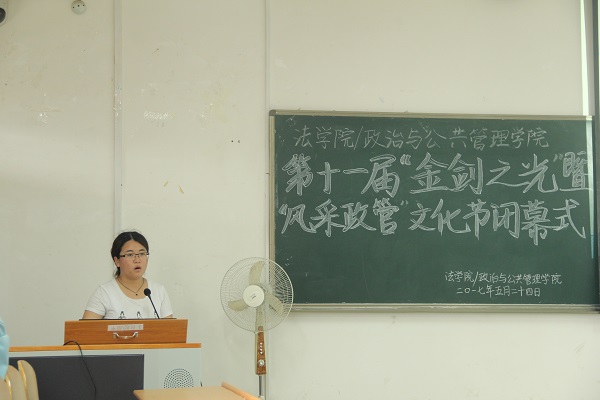 法学院/政治与公共管理学院
第十一届“金剑之光”暨
“风采政管”文化节闭幕式
法学院/政治与公共管理学院
二〇一七年五月二十四日